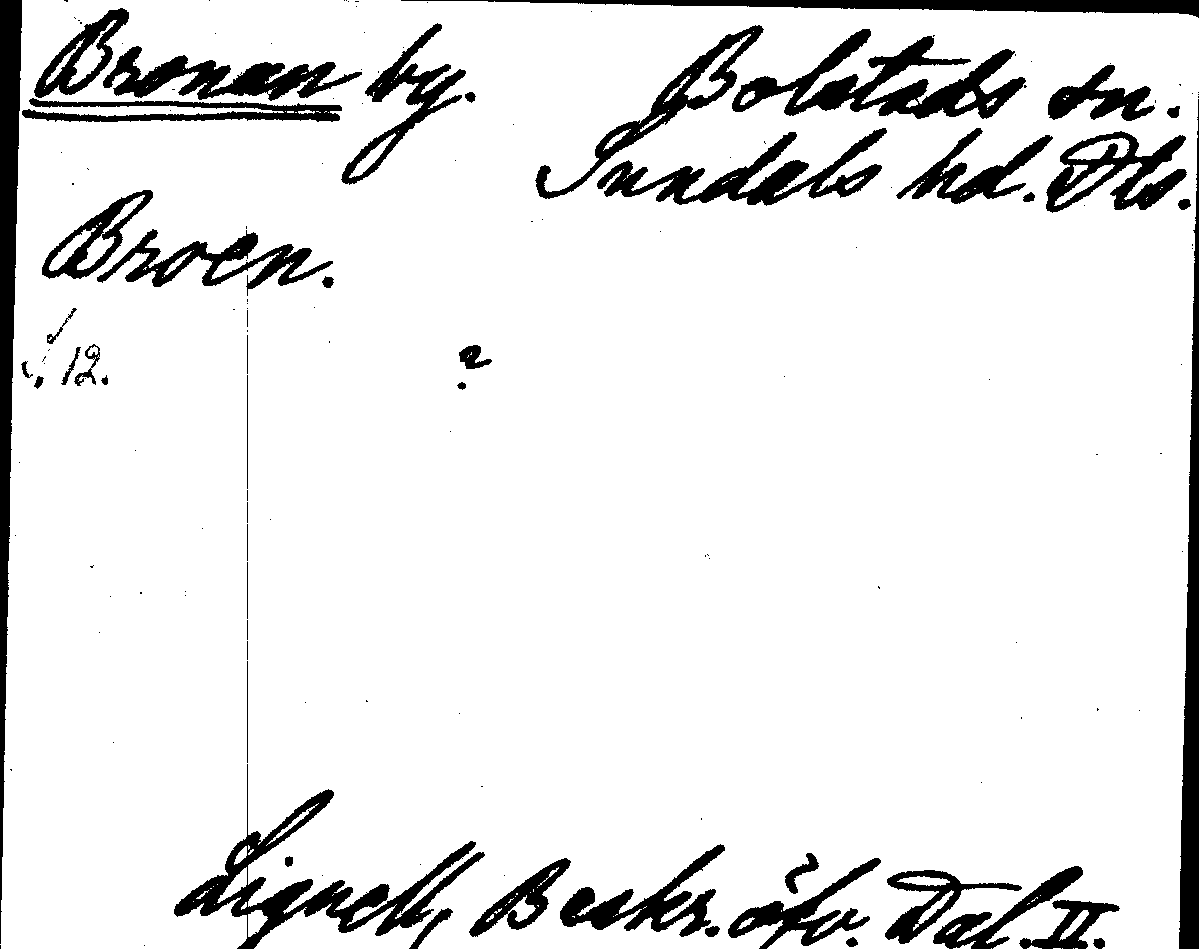 Bronan by. Bolstads sn.
Sundals hd. Dls.
Broen.
S. 12. ?
Lignell, Beskr. öfv. Dal. II.